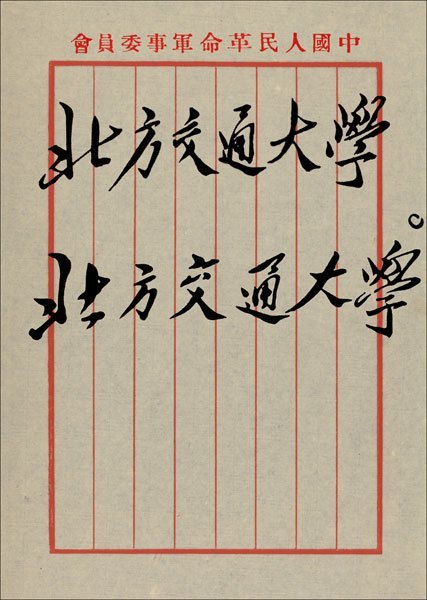 中國人民革命軍事委員會
北方交通大學
。
北方交通大學